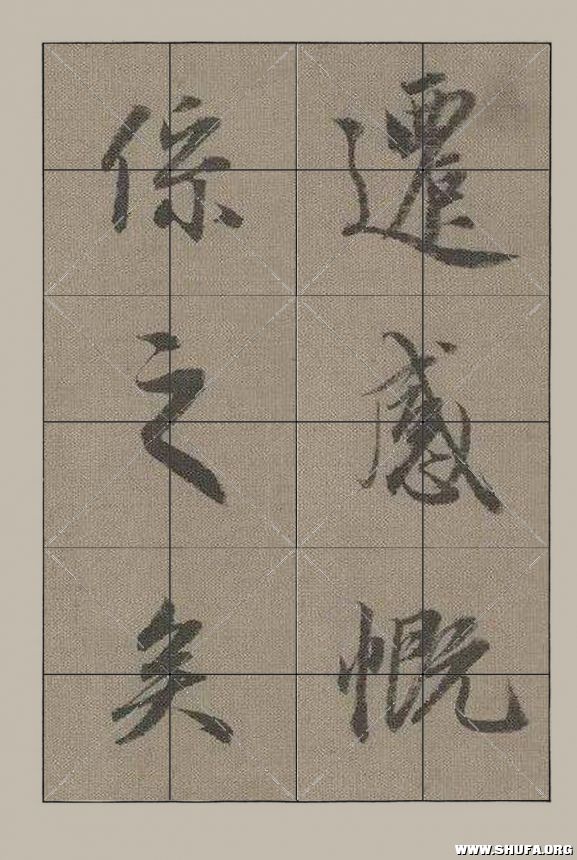 遷感慨
係之矣
WWW.SHUFA.ORG